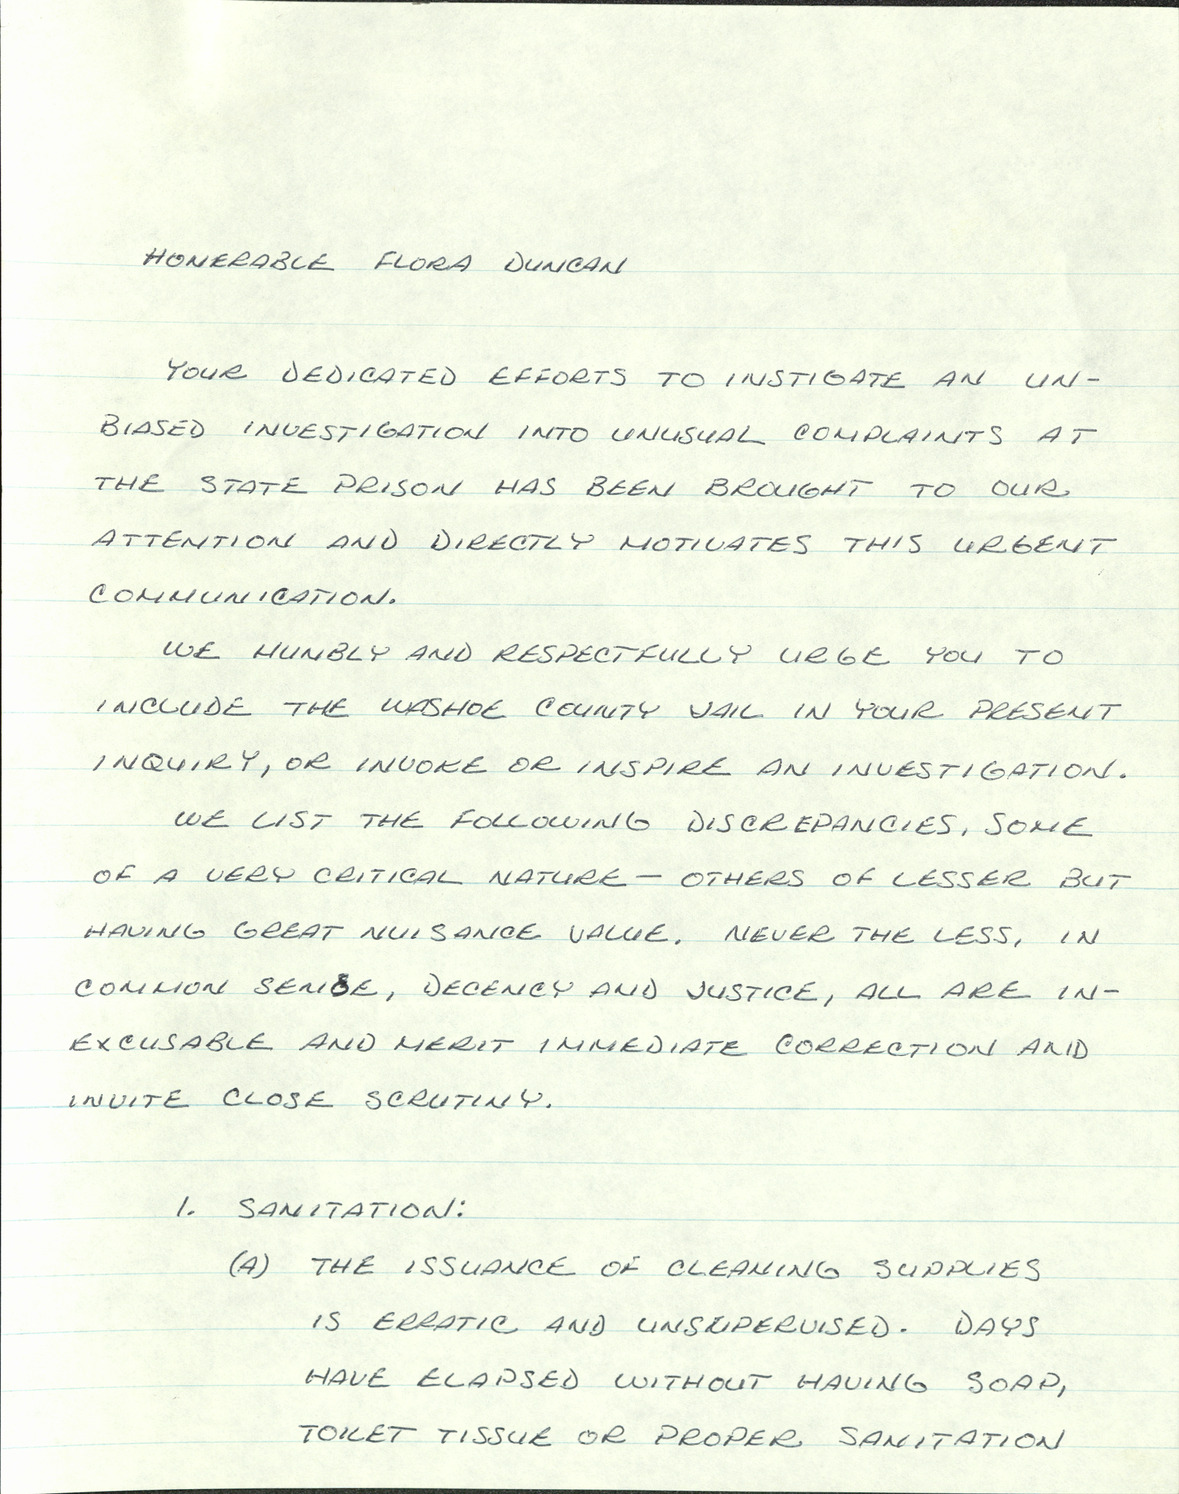 HONERABLE FLORA DUNCAN
YOUR DEDICATED EFFORTS TO INSTIGATE AN UN-
BIASED INVESTIGATION INTO UNUSUAL COMPLAINTS AT
THE STATE PRISON HAS BEEN BROUGHT TO OUR
ATTENTION AND DIRECTLY MOTIVATES THIS URGENT
COMMUNICATION.
WE HUNBLY AND RESPECTFULLY URGE YOU TO
INCLUDE THE WASHOE COUNTY JAIL IN YOUR PRESENT
INQUIRY, OR INVOKE OR INSPIRE AN INVESTIGATION.
WE LIST THE FOLLOWING DISCREPANCIES, SOME
OF A VERY CRITICAL NATURE — OTHERS OF LESSER BUT
HAVING GREAT NUISANCE VALUE. NEVER THE LESS, IN
COMMON SENSE, DECENCY AND JUSTICE, ALL ARE IN-
EXCUSABLE AND MERIT IMMEDIATE CORRECTION AND
INVITE CLOSE SCRUTINY.
1. SANITATION:
(A) THE ISSUANCE OF CLEANING SUPPLIES
IS ERRATIC AND UNSUPERVISED. DAYS
HAVE ELAPSED WITHOUT HAVING SOAP,
TOILET TISSUE OR PROPER SANITATION